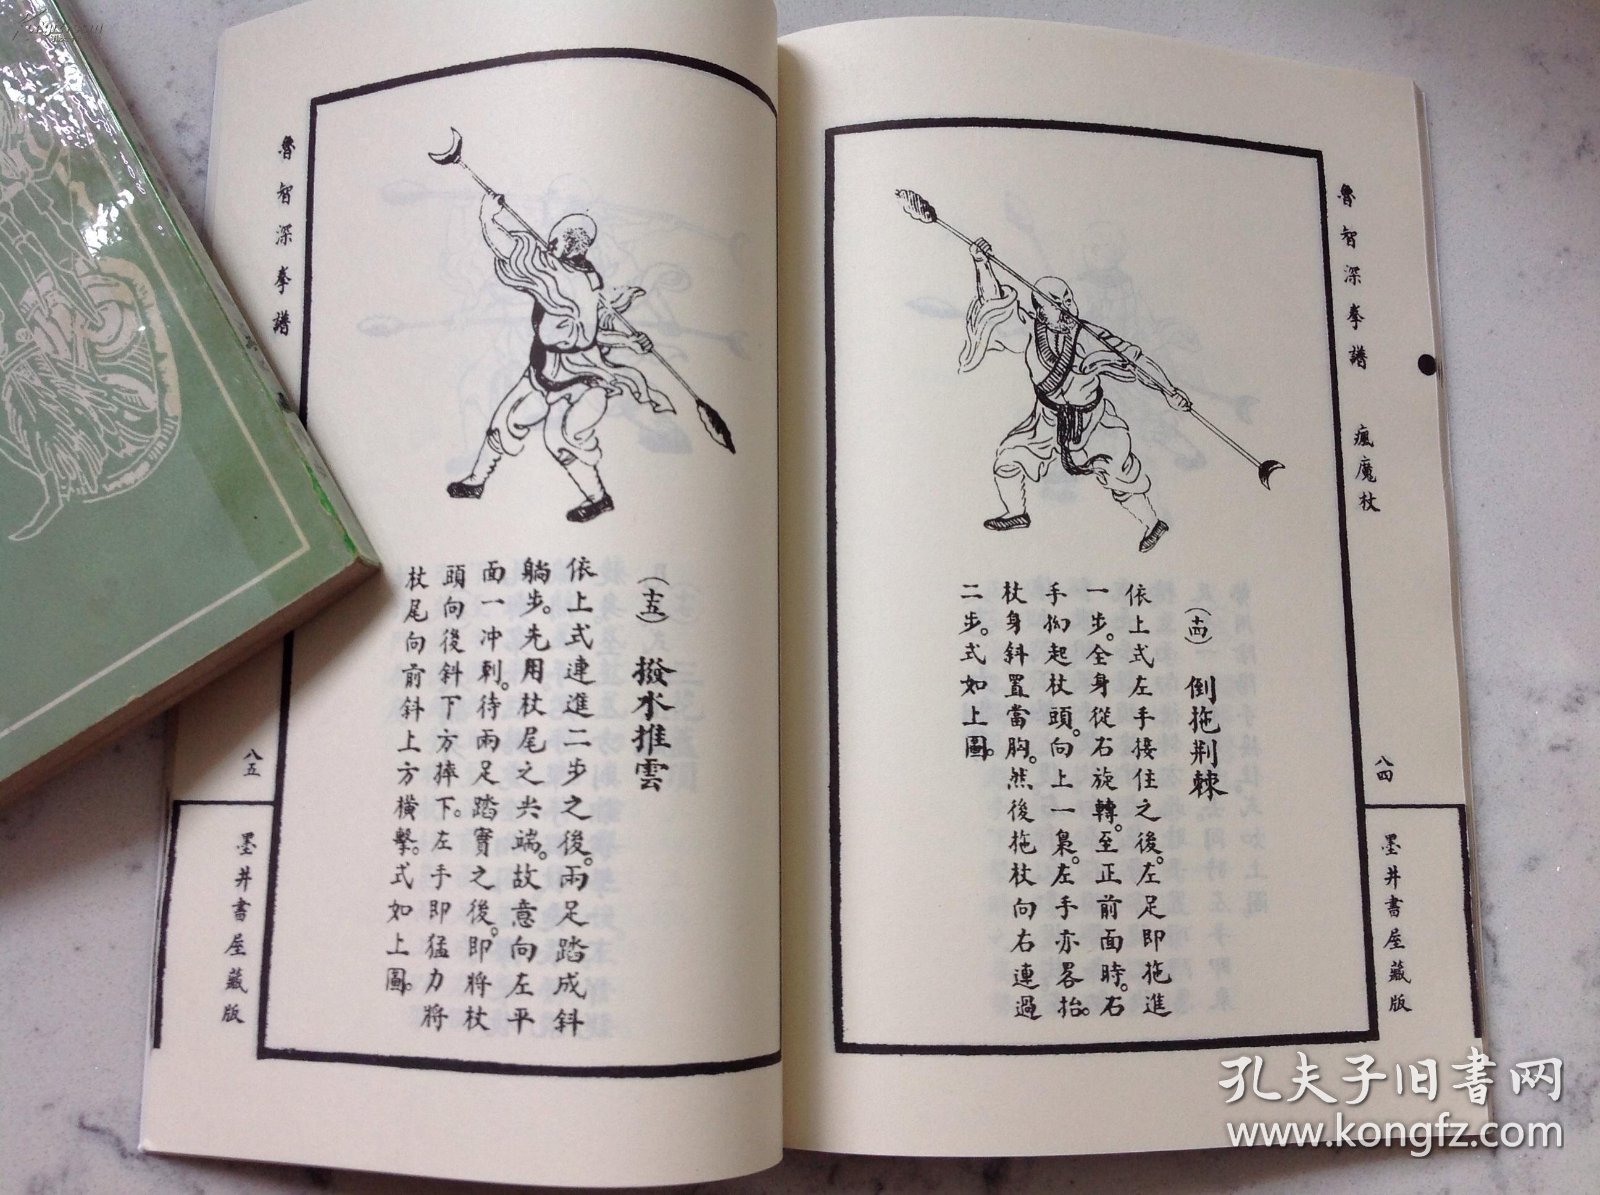 魯智深拳譜　瘋魔杖
八四
墨井書屋藏版
(十四)　倒拖荆棘
依上式左手接住之後。左足即拖進
一步。全身從右旋轉。至正前面時。右
手抝起杖頭。向上一梟。左手亦畧抬。
杖身斜置當胸。然後拖杖向右連過
二步。式如上圖。
魯智深拳譜
八五
墨井書屋藏版
(十五)　撥水推雲
依上式連進二步之後。兩足踏成斜
躺步。先用杖尾之尖端。故意向左平
面一冲刺。待兩足踏實之後。即將杖
頭向後斜下方摔下。左手即猛力將
杖尾向前斜上方橫擊。式如上圖。
孔夫子旧書网
www.kongfz.com